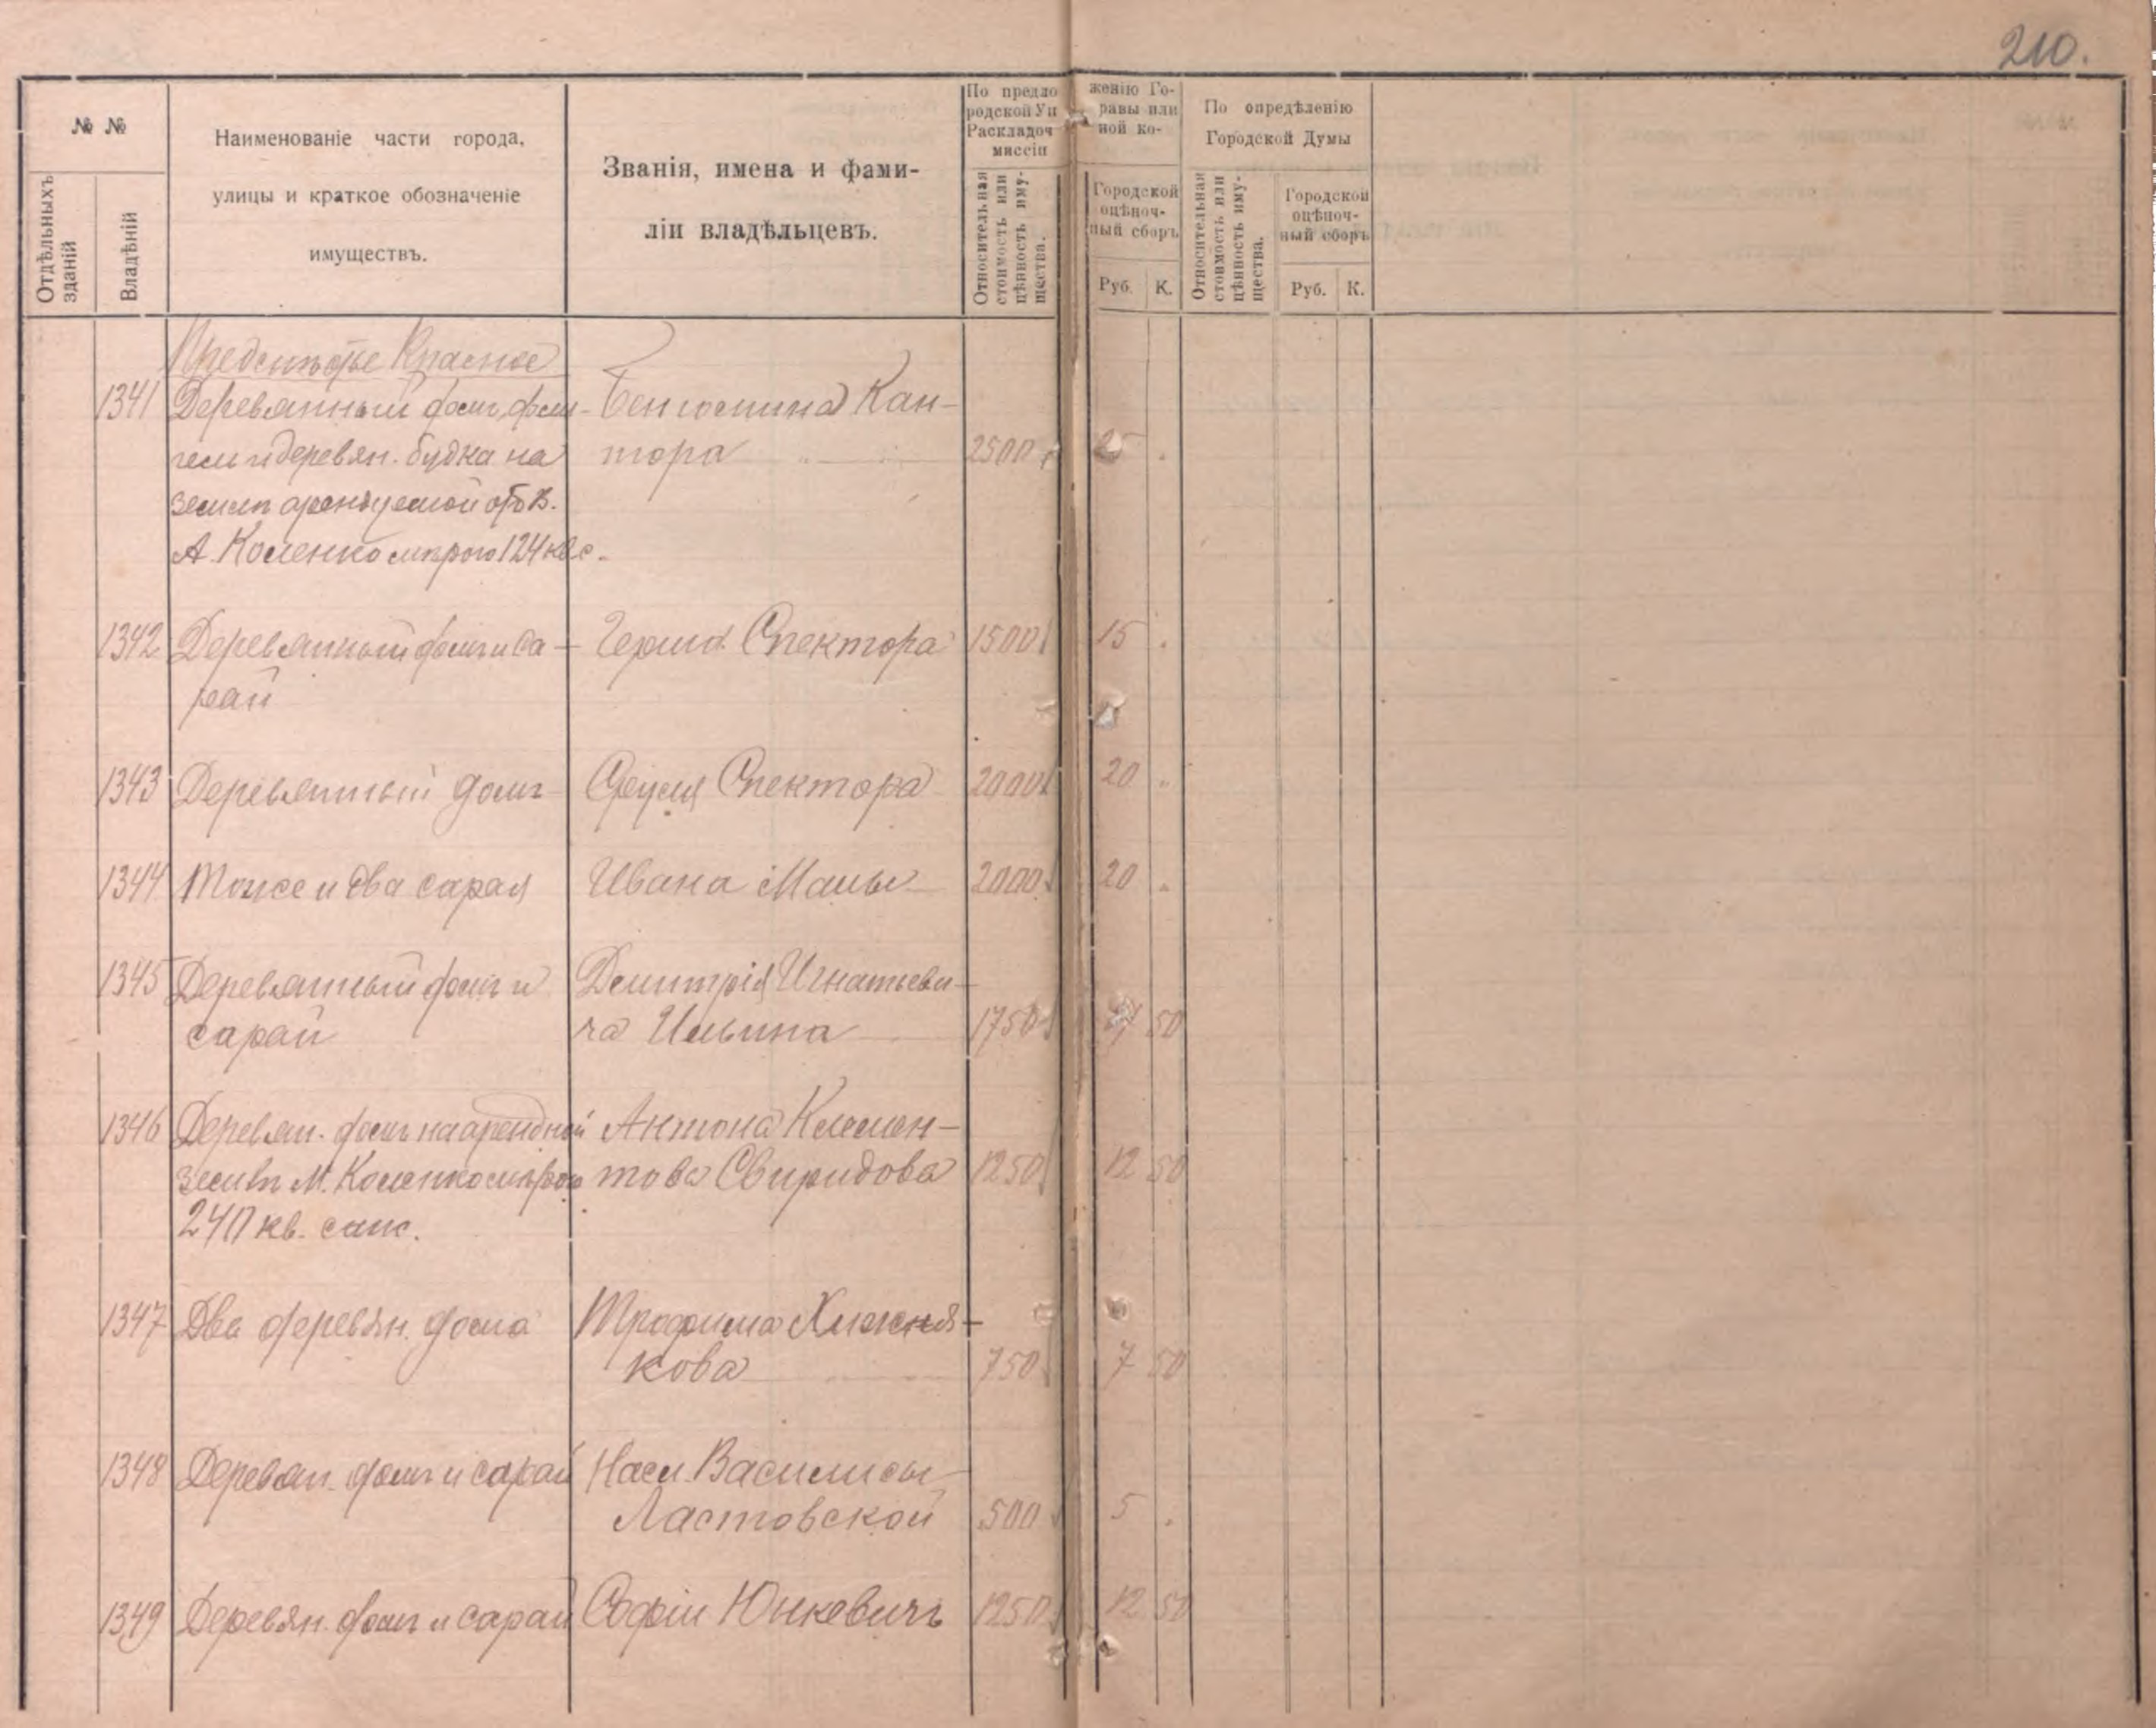 210.
№ №
Отдѣльныхъ зданій
Владѣній
Наименованіе части города,
улицы и краткое обозначеніе
имуществъ.
Званія, имена и фами-
ліи владѣльцевъ.
По предло женію Го-
родской Уп равы или
Раскладоч ной ко-
миссіи
Относительная
стоимость или
цѣнность иму-
щества.
Городской
оцѣноч-
ный сборъ
Руб. К.
По опредѣленію
Городской Думы
Относительная
стоимость или
цѣнность иму-
щества.
Городской
оцѣноч-
ный сборъ
Руб. К.
Предмѣстье Красное
1341 Деревянный домъ, фли- Бенюмина Кан-
гель и деревян. будка на тора 2500 25 .
землѣ арендуемой отъ В.
А. Коленко мѣрою 124 кв с.
1342 Деревянный домъ и са- Герша Спектора 1500 15 .
рай
1343 Деревянный домъ Спектора 2000 20 "
1344 Тоже и два сарая Ивана 2000 20 "
1345 Деревянный домъ и Дмитрія Игнатьеви-
сарай ча Ильина 1750 17 50
1346 Деревян. домъ на арендной Антона Климен-
землѣ М. Коленко мѣрою това Свиридова 1250 12 50
240 кв. саж.
1347 Два деревян. дома Трофима Хижня-
кова 750 7 50
1348 Деревян. домъ и сарай Насл. Василисы
Ластовской 500 5 .
1349 Деревян. домъ и сарай Софіи Юнкевичъ 1250 12 50